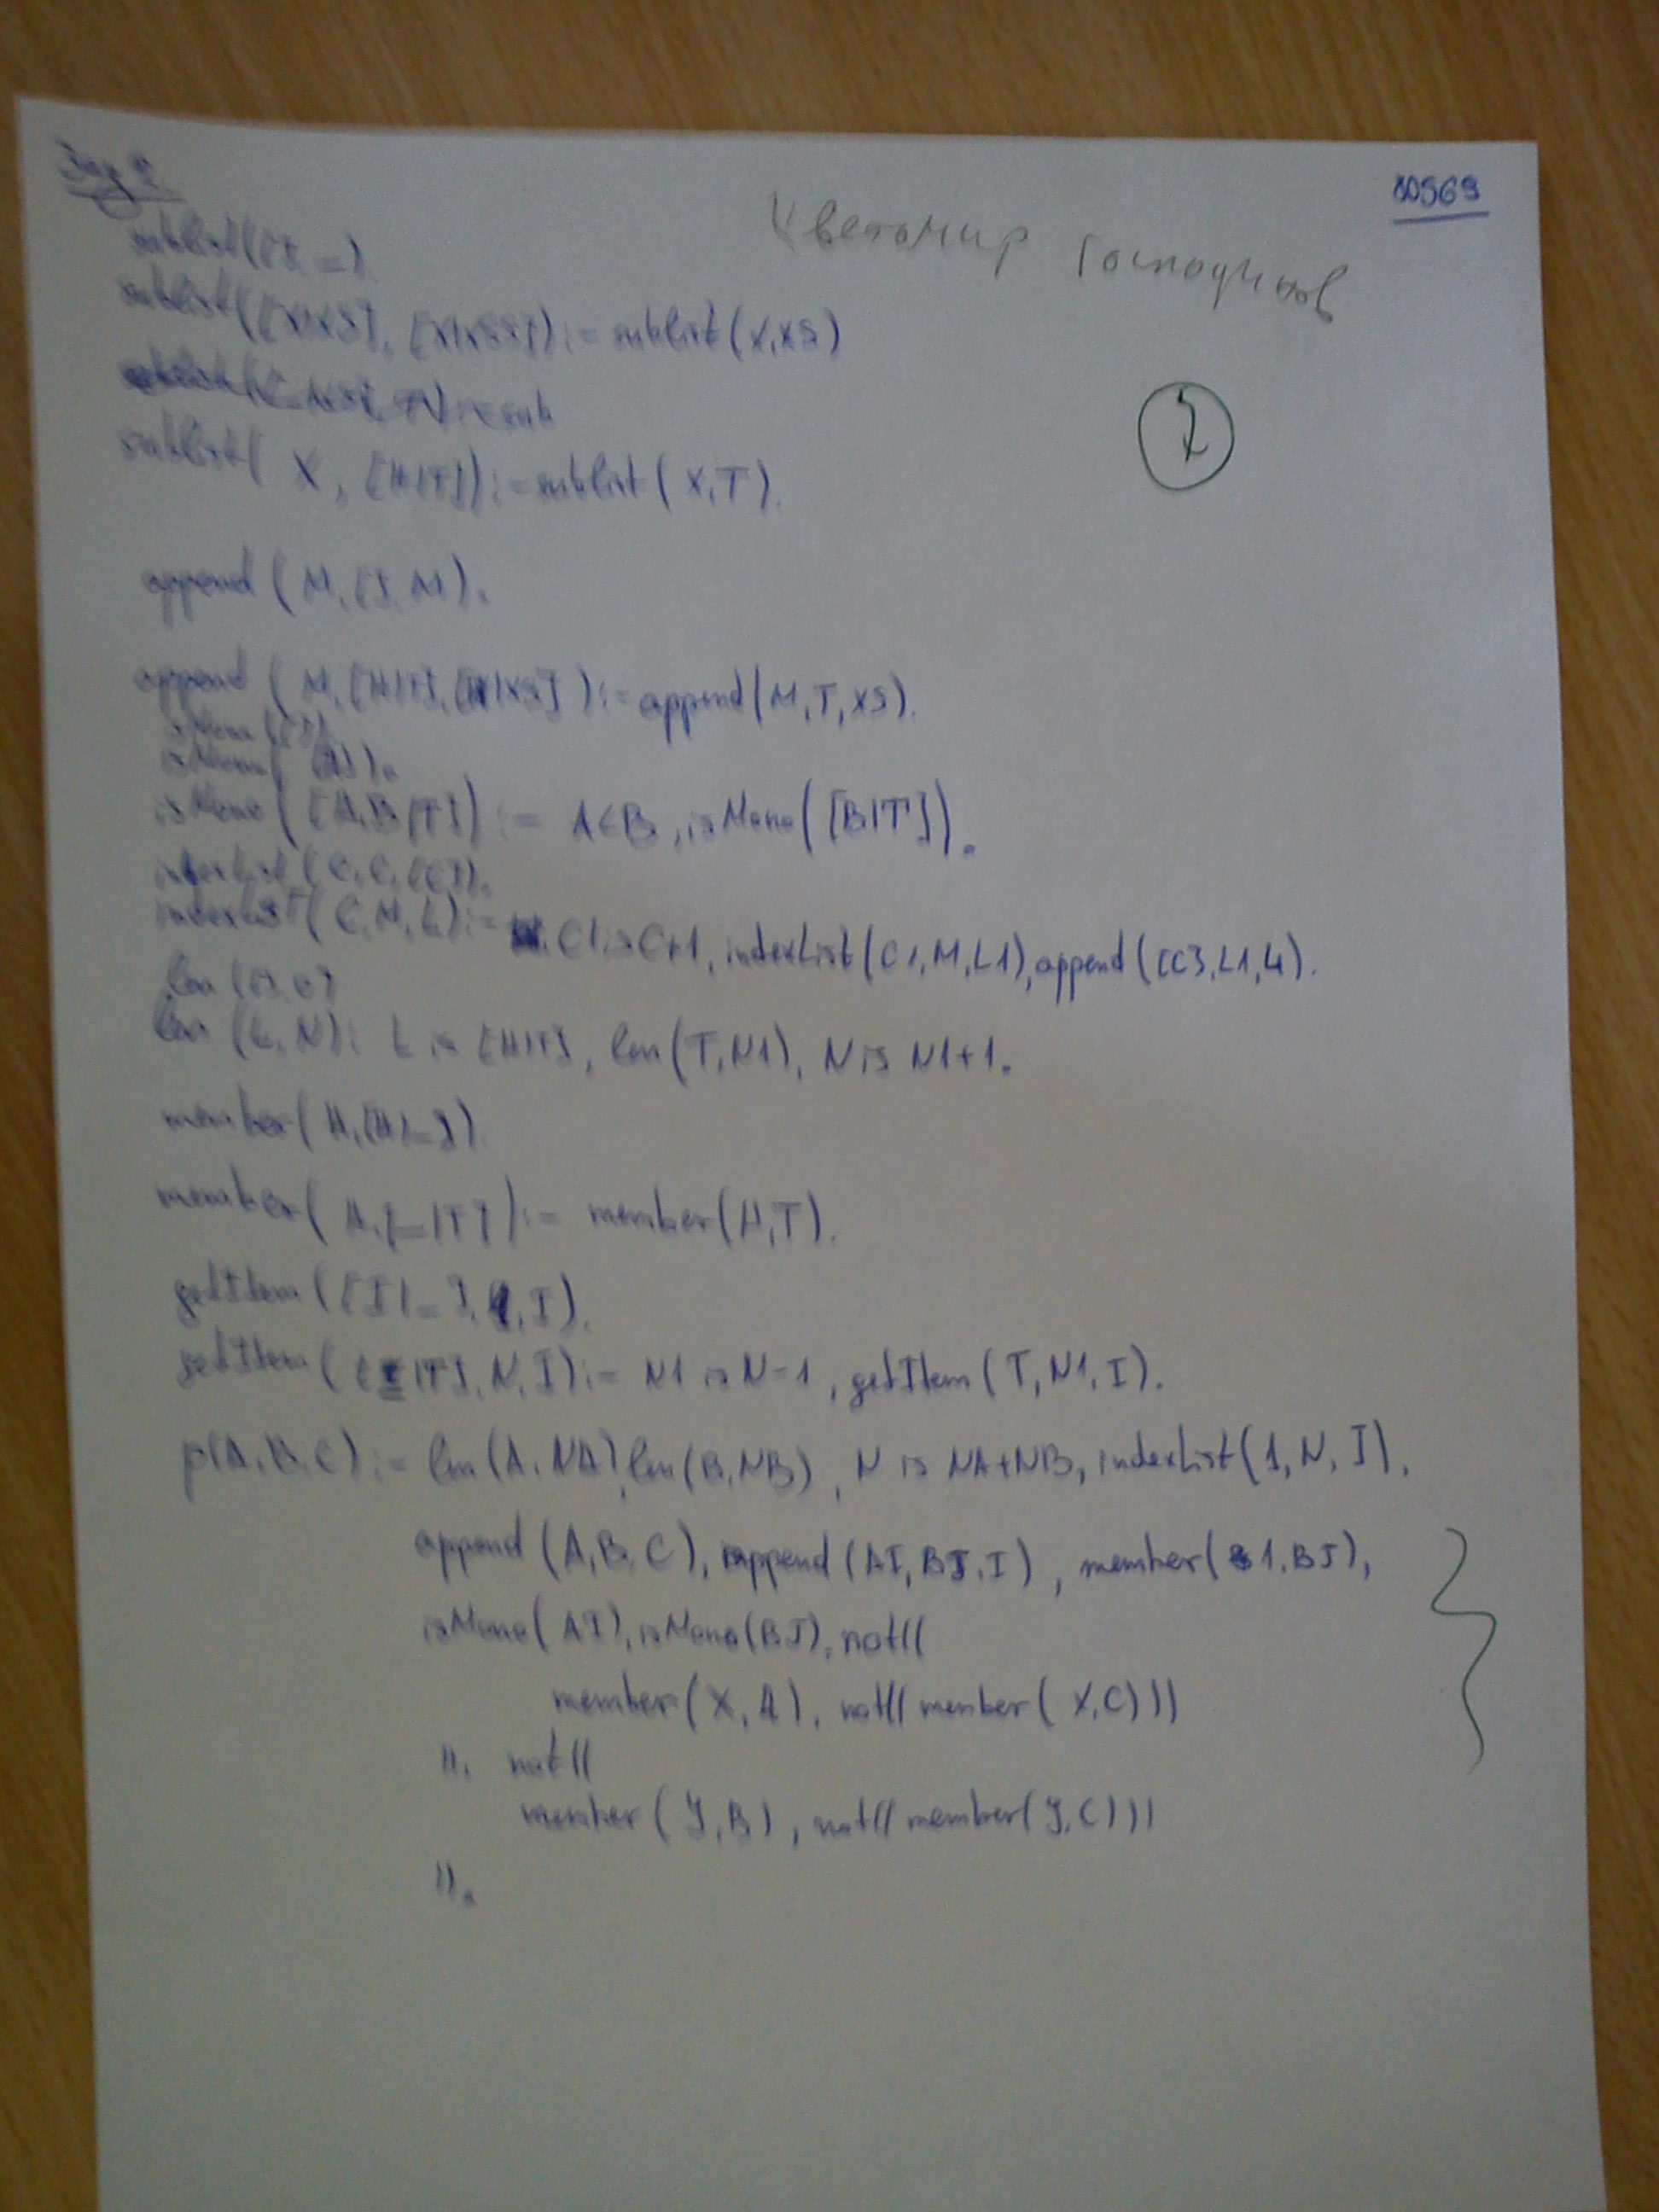 Зад 2
80569
Цветомир Господинов
sublist([], _).
sublist([X|XS], [X|XSS]) :- sublist(X,XS)
2
sublist( X, [H|T]) :- sublist( X,T).
append ( M, [], M).
append ( M, [H|T], [H|XS] ) :- append(M,T,XS).
isMono([]).
isMono( [A]).
isMono( [A,B|T]) :- A<B, isMono([B|T]).
indexList(C,C,[C]).
indexList( C,M,L) :- C1 is C+1, indexList(C1,M,L1), append([C],L1,L).
len ([],0)
len (L,N): L is [H|T], len(T,N1), N is N1+1.
member( H,[H|_]).
member( H,[_|T] ) :- member(H,T).
getItem ([I|_], 1, I).
getItem ( [_|T], N, I) :- N1 is N-1, getItem(T,N1,I).
p(A,B,C) :- len(A,NA), len(B,NB), N is NA+NB, indexList(1,N,I),
append (A,B,C), append (AI,BJ,I), member(1,BJ),
isMono( AI), isMono(BJ), not((
member( X, A), not(( member( X,C)))
)), not((
member ( Y,B), not(( member( Y,C)))
)).